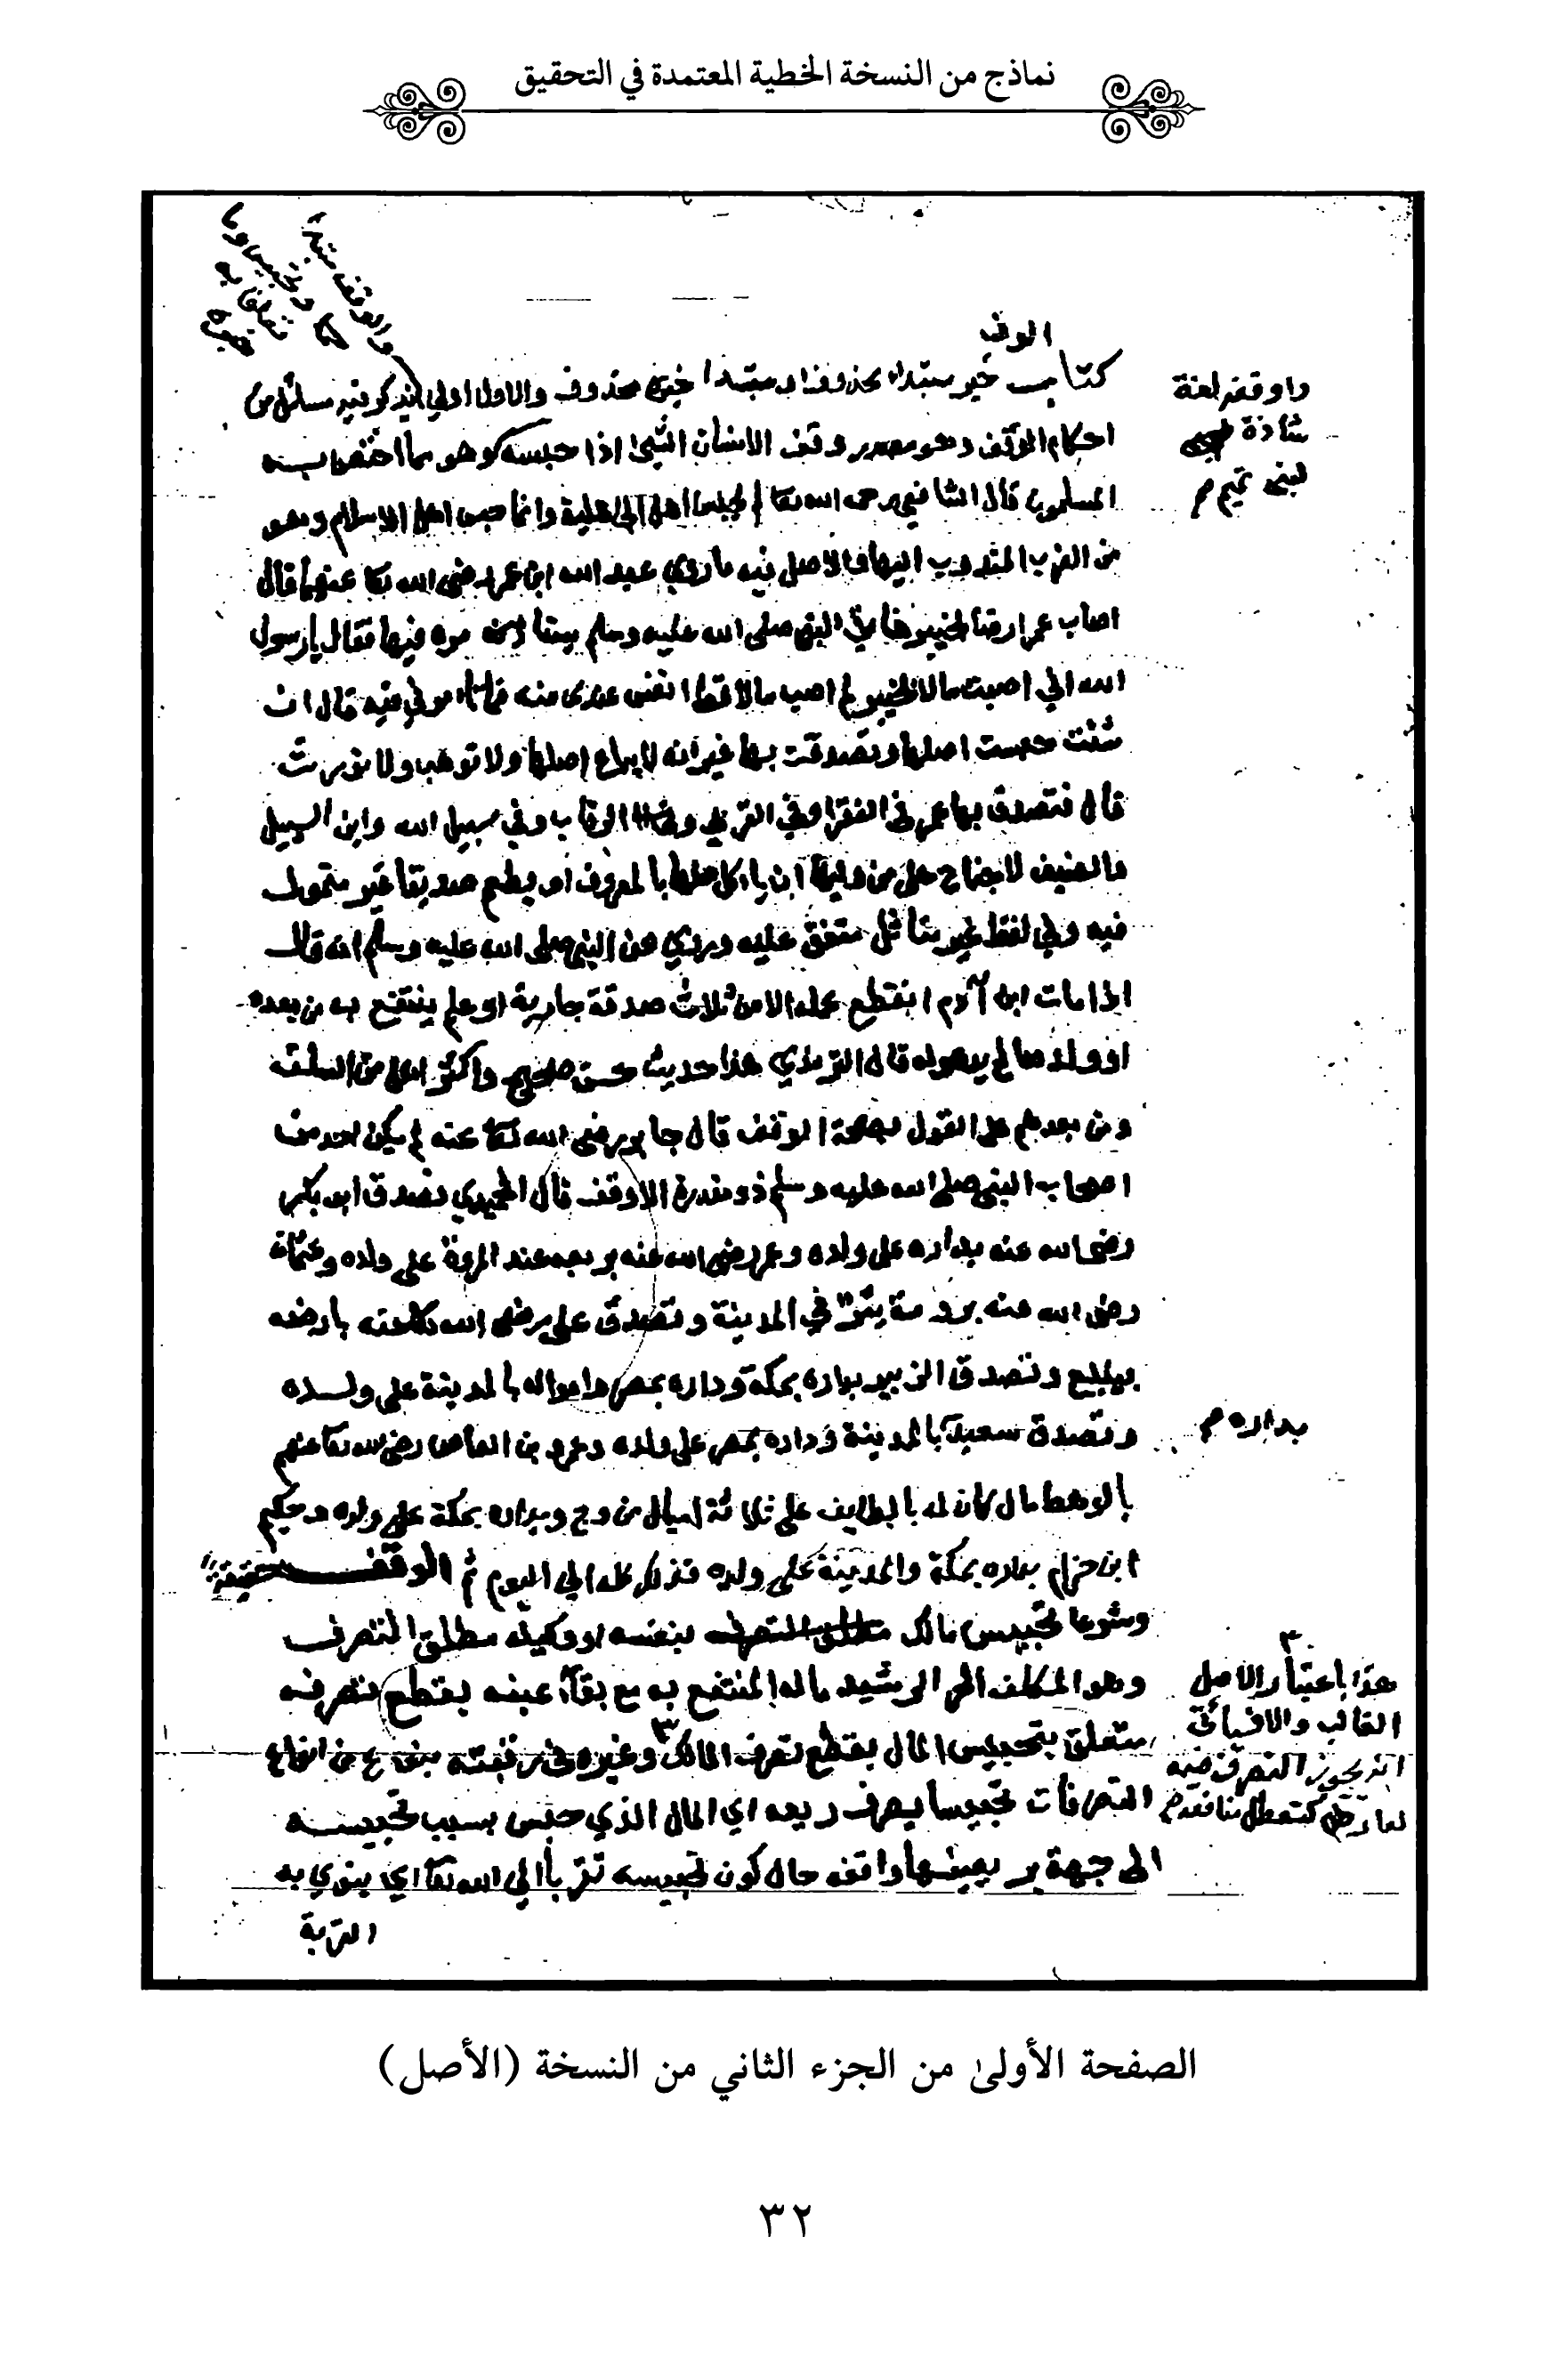 نماذج من النسخة الخطية المعتمدة في التحقيق
الوقف
كتاب خبر مبتداء محذوف او مبتدا خبره محذوف والاول اولى اي يذكر فيه مسائل من
احكام الوقف وهو مصدر وقف الانسان الشيئ اذا حبسه وهو مما اختص به
المسلمون قال الشافعي رحمه الله تعا لم يحبس اهل الجاهلية وانما حبس اهل الاسلام وهو
من القرب المندوب اليها والاصل فيه ما روى عبد الله ابن عمر رضى الله تعا عنهما قال
اصاب عمر ارضا بخيبر فاتى النبي صلى الله عليه وسلم يستامره فيها فقال يا رسول
الله اني اصبت مالا بخيبر لم اصب مالا قط انفس عندى منه فما تامرني فيه قال ان
شئت حبست اصلها وتصدقت بها غير انه لا يباع اصلها ولا توهب ولا تورث
قال فتصدق بها عمر في الفقرا وفي القربى وفي الرقاب وفي سبيل الله وابن السبيل
والضيف لا جناح على من وليها ان ياكل منها بالمعروف او يطعم صديقا غير متمول
فيه وفي لفظ غير متاثل متفق عليه وروي عن النبي صلى الله عليه وسلم انه قال
اذا مات ابن آدم انقطع عمله الا من ثلاث صدقة جارية او علم ينتفع به من بعده
او ولد صالح يدعو له قال الترمذي هذا حديث حسن صحيح واكثر اهل من السلف
ومن بعدهم على القول بصحة الوقف قال جابر رضى الله تعا عنه لم يكن احد من
اصحاب النبي صلى الله عليه وسلم ذو مقدرة الا وقف قال الحميدي تصدق ابو بكر
رضى الله عنه بداره على ولده وعمر رضى الله عنه بربعه عند المروة على ولده وعثمان
رضى الله عنه برومة في المدينة وتصدق علي رضى الله تعا عنه بارضه
بينبع وتصدق الزبير بداره بمكة وداره بمصر وامواله بالمدينة على ولده
وتصدق سعيد بالمدينة وداره بمصر على ولده وعمرو بن العاص رضى الله تعا عنهم
بالوهط مال كان له بالطايف على ثلاثة اميال من وج وبداره بمكة على ولده وحكيم
ابن حزام بداره بمكة والمدينة على ولده فذلك كله الى اليوم ثم الوقف
وشرعا تحبيس مالك مطلق التصرف بنفسه او وكيله مطلق التصرف
وهو المكلف الحر الرشيد ماله المنتفع به مع بقاء عينه بقطع تصرفه
متعلق بتحبيس المال بقطع تصرف المالك وغيره في رقبته بنوع من انواع
التصرفات تحبيسا يصرف ريعه اي المال الذي حبس بسبب تحبيسه
الى جهة بر يعينها واقفه حال كون تحبيسه تقربا الى الله تعا اي ينوي به
القربة
واوقفه لغة
شاذة
لبني تميم م
بداره م
هذا باعتبار الاصل
الغالب والا فسياتي
انه يجوز التصرف فيه
الصفحة الأولىٰ من الجزء الثاني من النسخة (الأصل)
٣٢